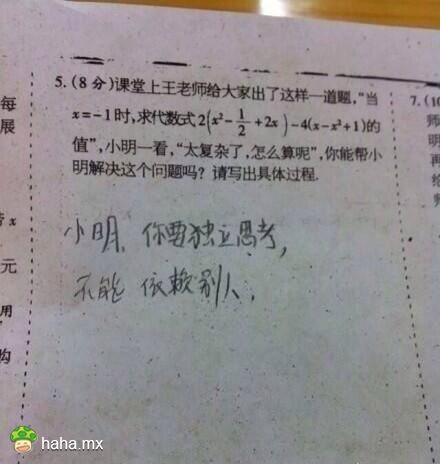 5.(8分)课堂上王老师给大家出了这样一道题,“当
x=-1时,求代数式2(x²-1/2+2x)-4(x-x²+1)的
值”,小明一看,“太复杂了,怎么算呢”,你能帮小
明解决这个问题吗? 请写出具体过程.
小明、你要独立思考,
不能 依赖别人.
每
展
x
元
用
购
7.(10
师
明
再
给
haha.mx